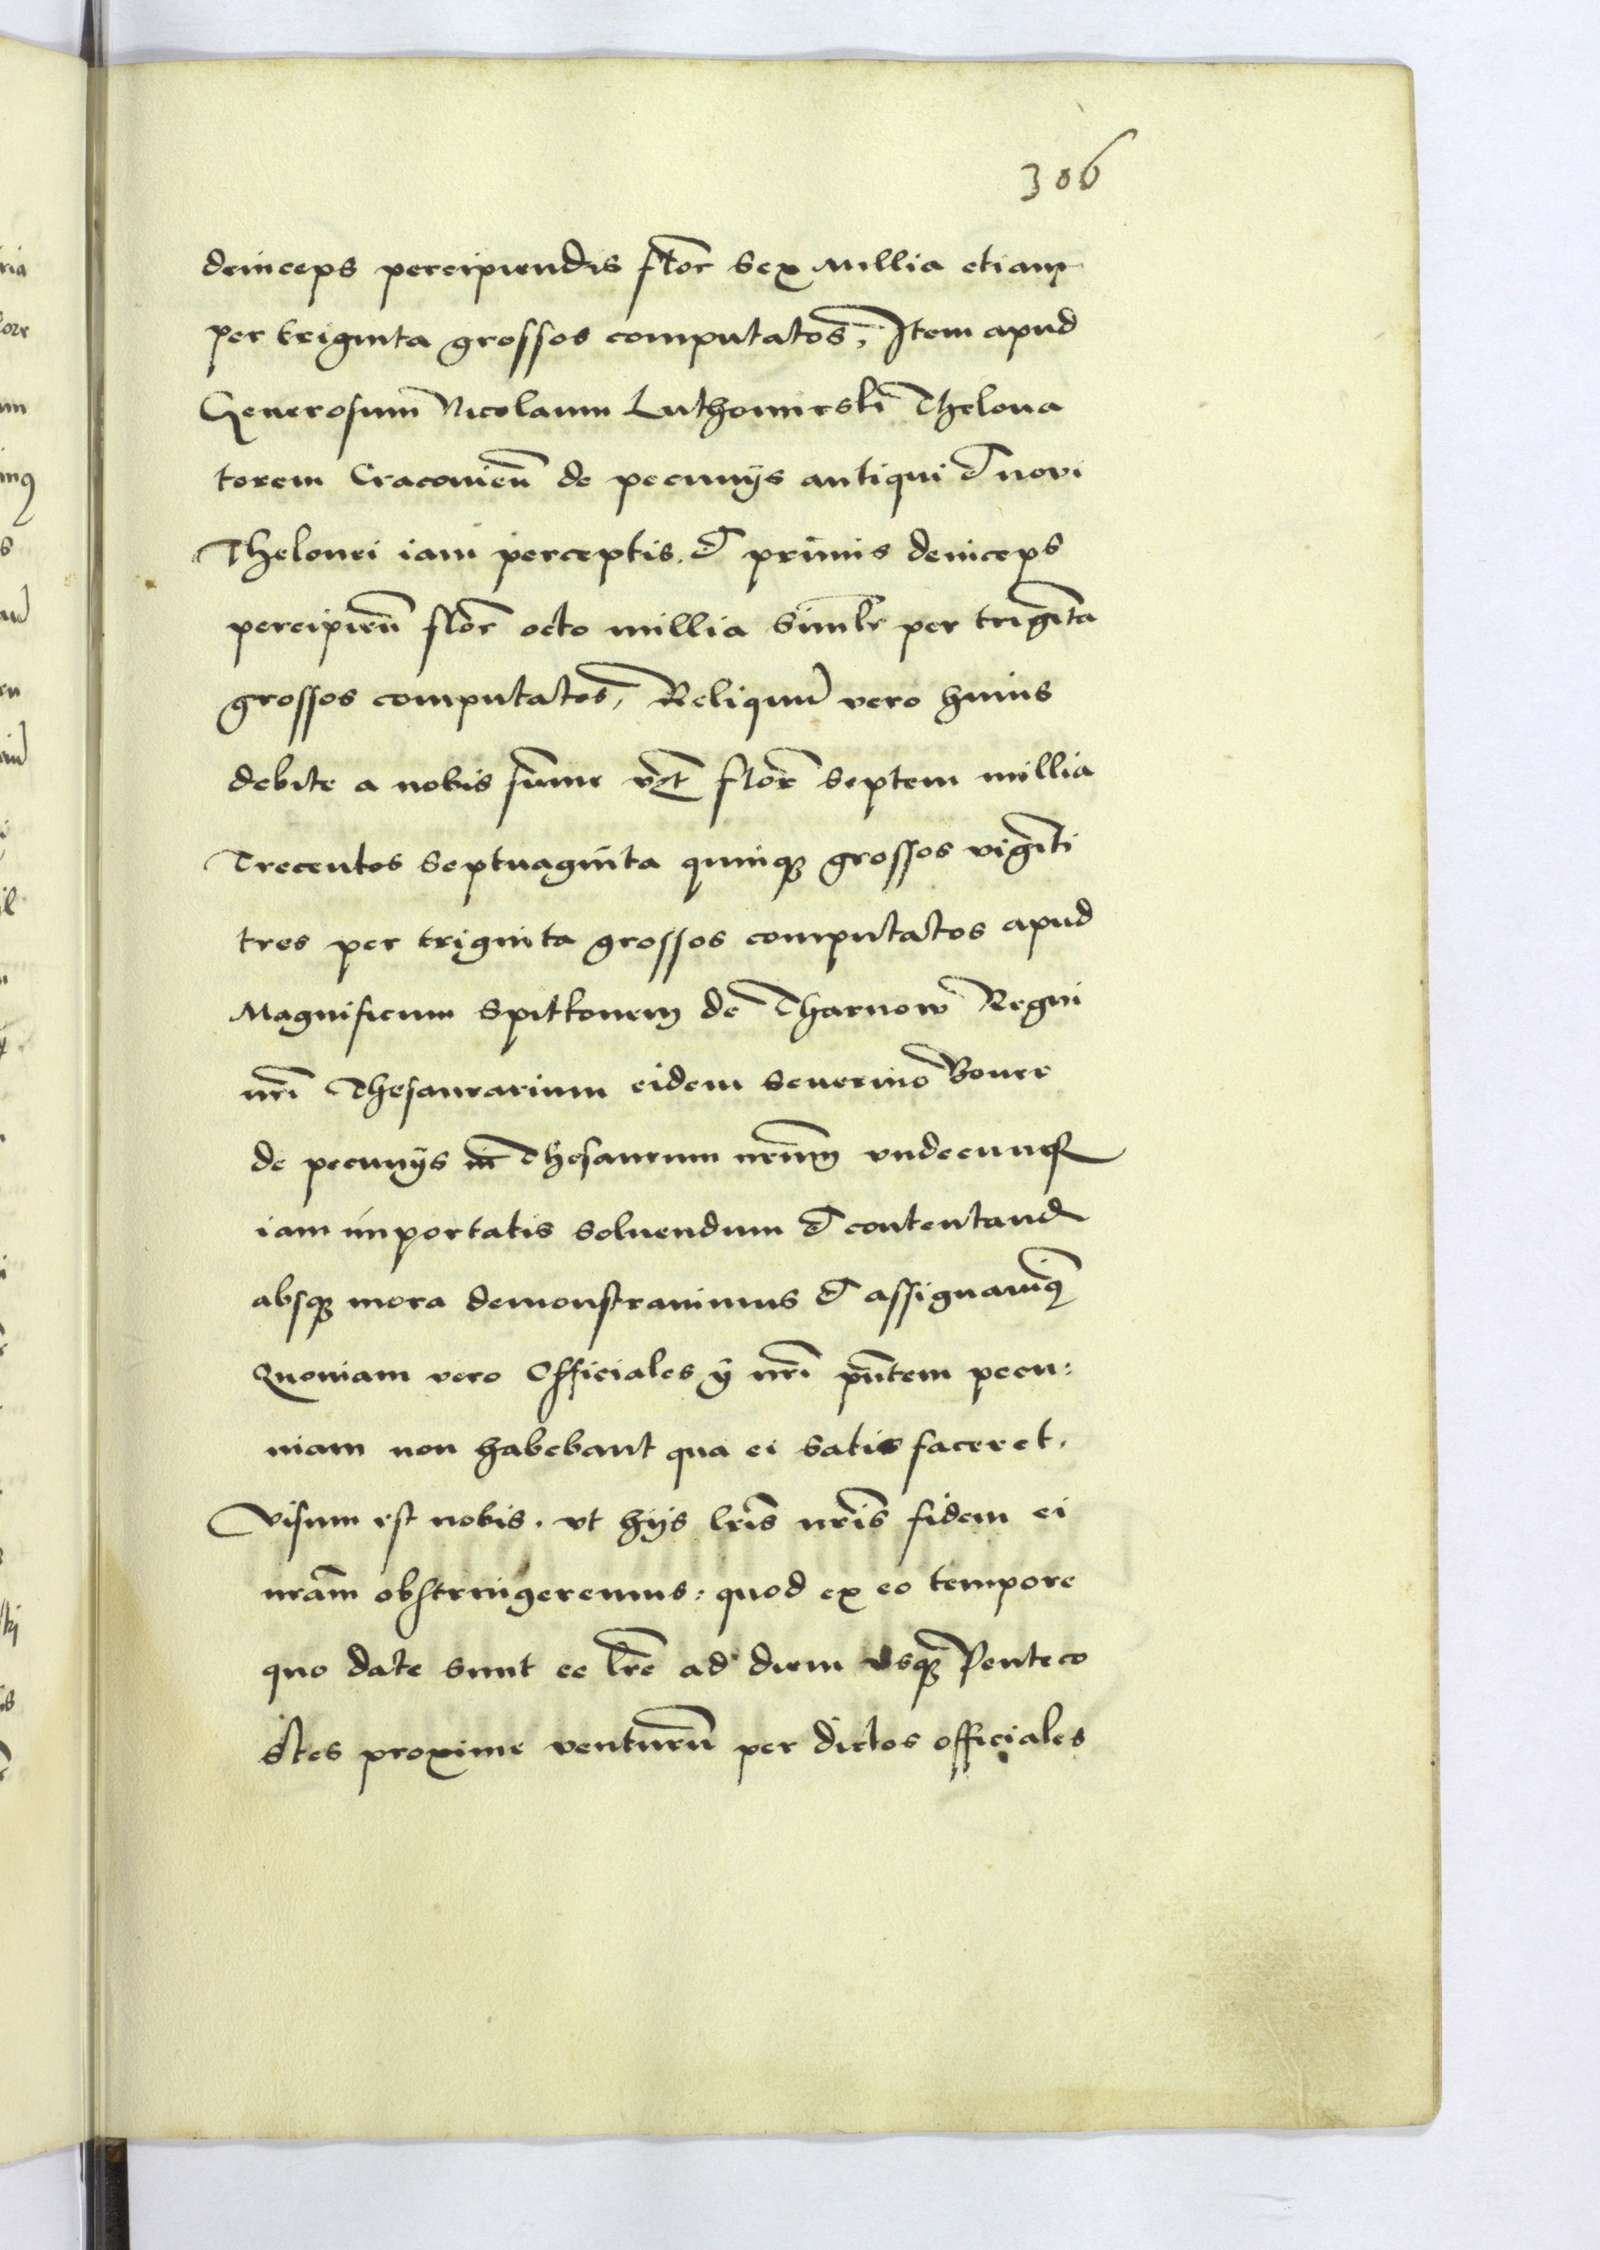 306
deinceps percipiendis flor̄ sex Millia etiam
per triginta grossos computatos, Item apud
Generosum Nicolaum Luthomirski Thelona
torem Cracovieñ de pecunijs antiqui et novi
Thelonei iam perceptis. et primis deinceps
percipieñ flor̄ octo millia simlr̄ per trigīta
grossos computatos, Reliquū vero huius
debite a nobis sum̄e vȝt flor̄ septem millia
Trecentos septuaginta quinqȝ grossos vigīti
tres per triginta grossos computatos apud
Magnificum Spitkonem de Tharnow Regni
nr̄i Thesaurarium eidem Severino Boner
de pecunijs in Thesaurum nr̄um undecunqȝ
iam importatis solvendum et contentand
absqȝ mora demonstravimus et assignavimꝰ
Quoniam vero Officiales ij nr̄i pn̄tem pecu:
niam non habebant qua ei satis faceret.
Visum est nobis. ut hijs lr̄is nr̄is fidem ei
nr̄am obstringeremus: quod ex eo tempore
quo date sunt ee lr̄e ad diem usqȝ Penteco
stes proxime venturū per dictos officiales